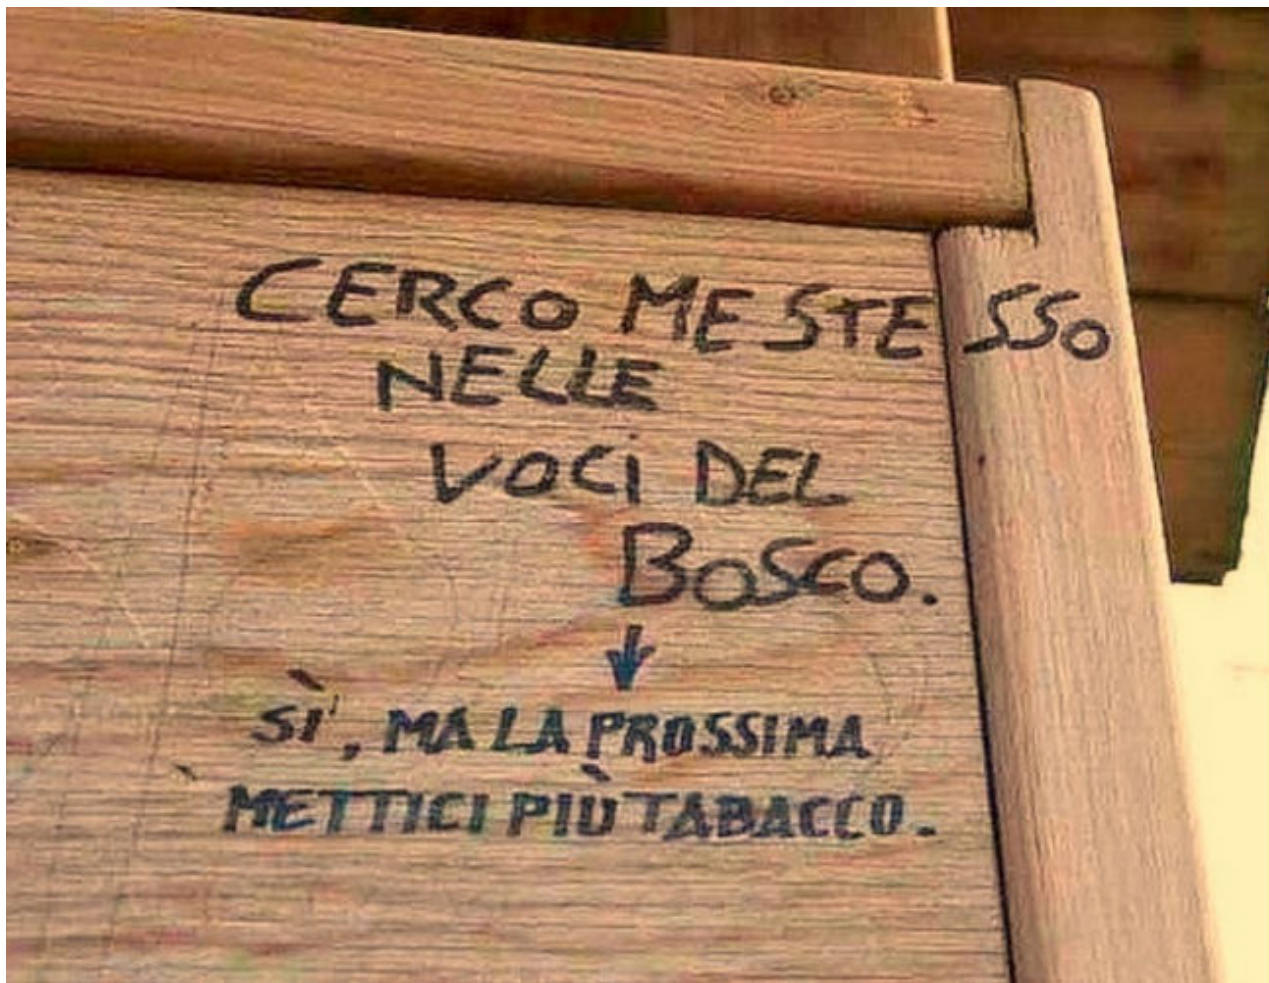 CERCO ME STESSO
NELLE
VOCI DEL
BOSCO.
↓
SÌ, MA LA PROSSIMA
METTICI PIÙ TABACCO.